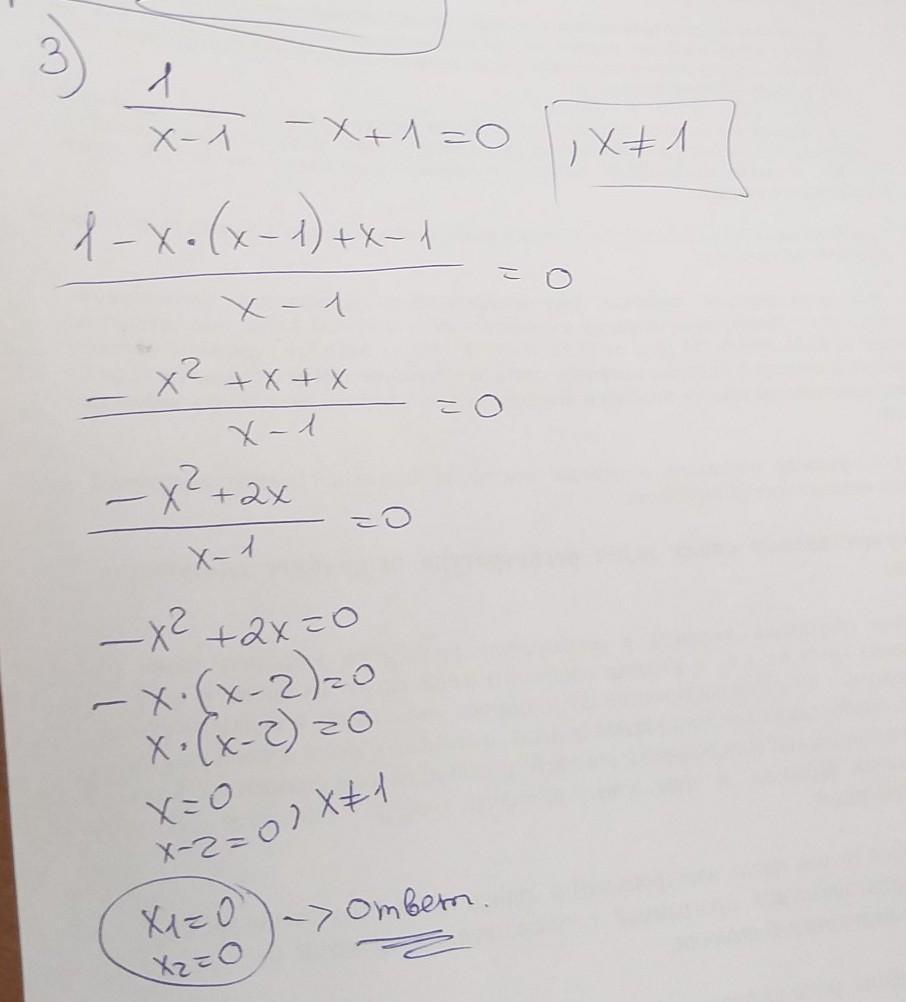 3)
1/(x-1) -x+1=0 , x≠1
(1-x·(x-1)+x-1)/(x-1) =0
(-x²+x+x)/(x-1) =0
(-x²+2x)/(x-1) =0
-x²+2x=0
-x·(x-2)=0
x·(x-2)=0
x=0
x-2=0 , x≠1
x1=0 -> Ответ.
x2=0